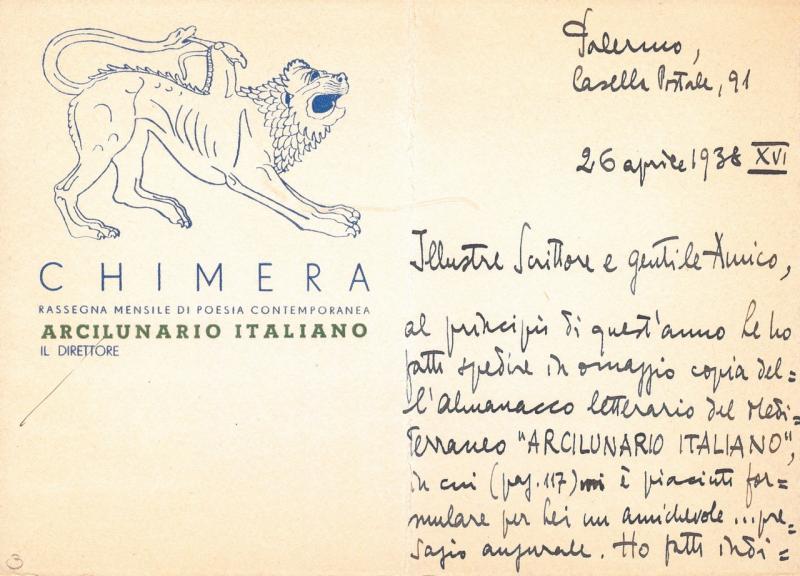 CHIMERA
RASSEGNA MENSILE DI POESIA CONTEMPORANEA
ARCILUNARIO ITALIANO
IL DIRETTORE
3
Palermo,
Casella Postale, 91
26 aprile 1938 XVI
Illustre Scrittore e gentile Amico,
al principio di quest'anno Le ho
fatto spedire in omaggio copia del=
l'Almanacco letterario del Medi=
terraneo "ARCILUNARIO ITALIANO",
in cui (pag. 117) mi è piaciuto for=
mulare per Lei un amichevole ... pre=
sagio augurale. Ho fatto indi=